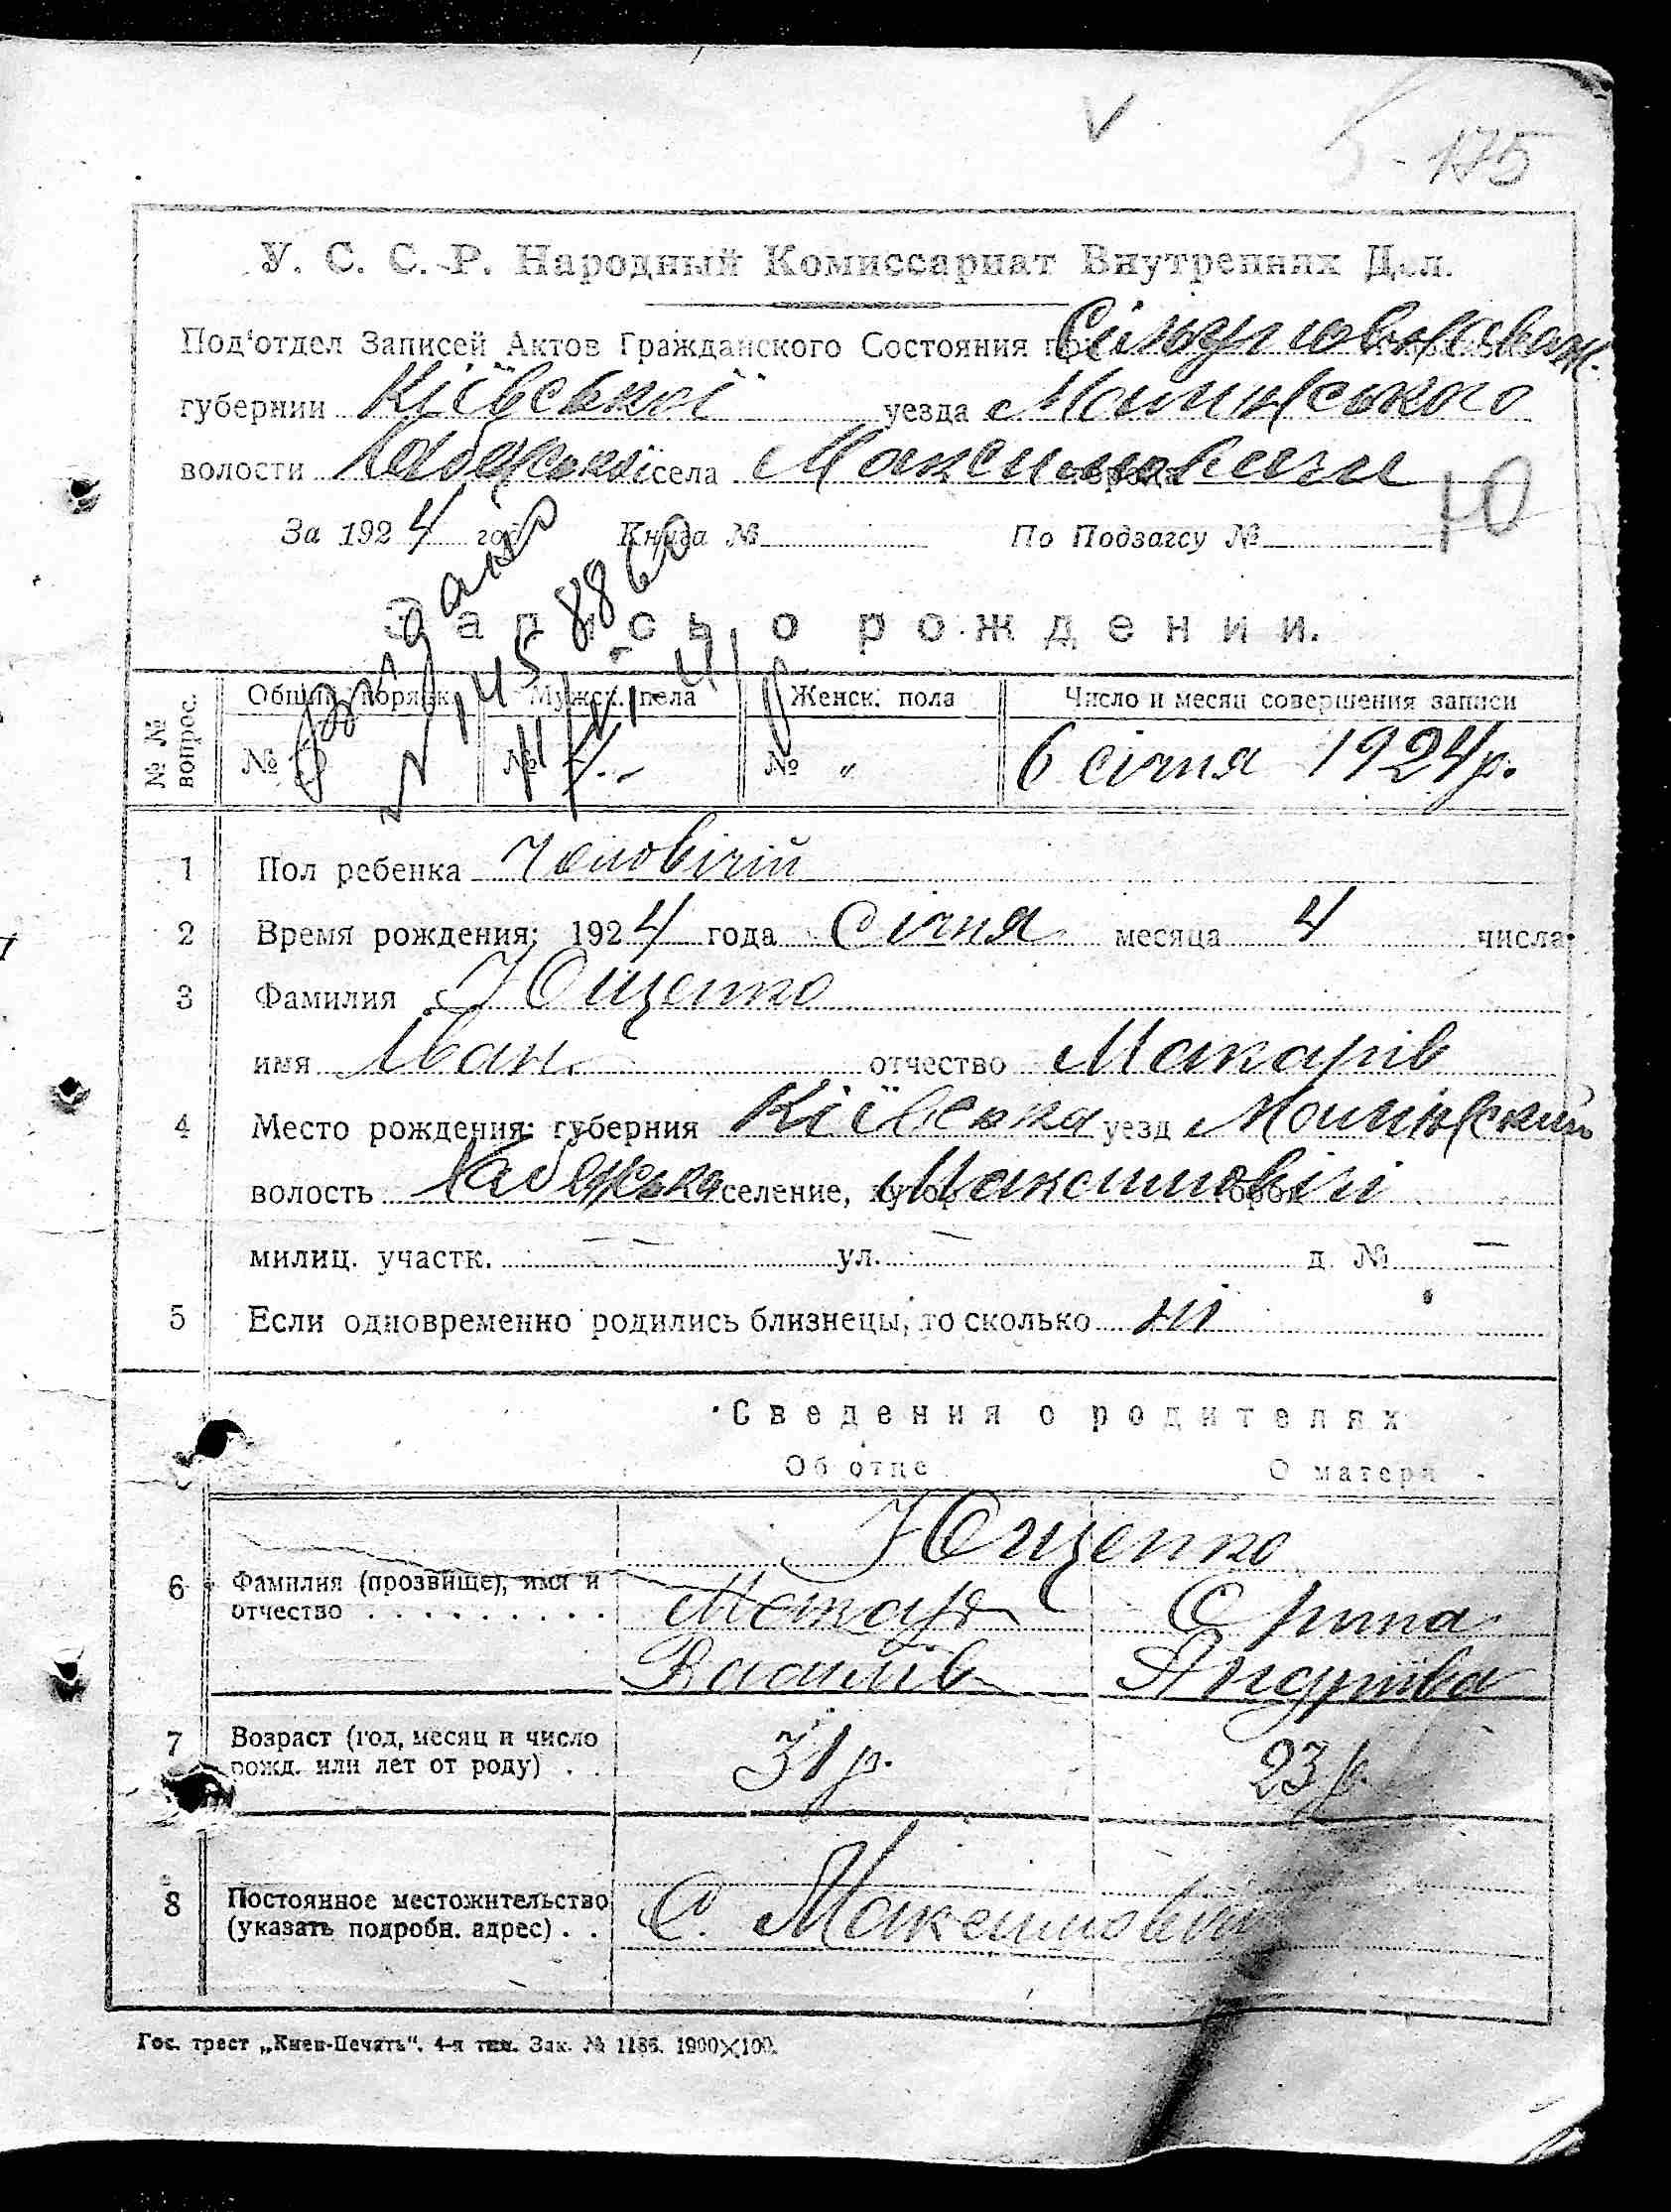 175
У. С. С. Р. Народный Комиссариат Внутренних Дел.
Под'отдел Записей Актов Гражданского Состояния при
губернии Київської уезда Малинського
волости села Максимовичи
За 1924 год Книга № По Подзагсу № 10
Запись о рождении.
№ № вопрос. Общий порядк. Мужск. пола Женск. пола Число и месяц совершения записи
№ № № " 6 січня 1924 р.
1 Пол ребенка Чоловічій
2 Время рождения: 1924 года Січня месяца 4 числа
3 Фамилия Ющенко
имя Іван отчество Макарів
4 Место рождения: губерния Київська уезд Малинский
волость селение, хутор Максимовічі
милиц. участк. — ул. — д. № —
5 Если одновременно родились близнецы, то сколько ні
Сведения о родителях
Об отце О матери
Ющенко
6 Фамилия (прозвище), имя и отчество . . . . . . . . . Макар Орина
Василів Андріїва
7 Возраст (год, месяц и число рожд. или лет от роду) . . 31 р. 23 р.
8 Постоянное местожительство (указать подробн. адрес) . . С. Максимовичи
Гос. трест „Киев-Печать". 4-я тип. Зак. № 1186. 1900×100.